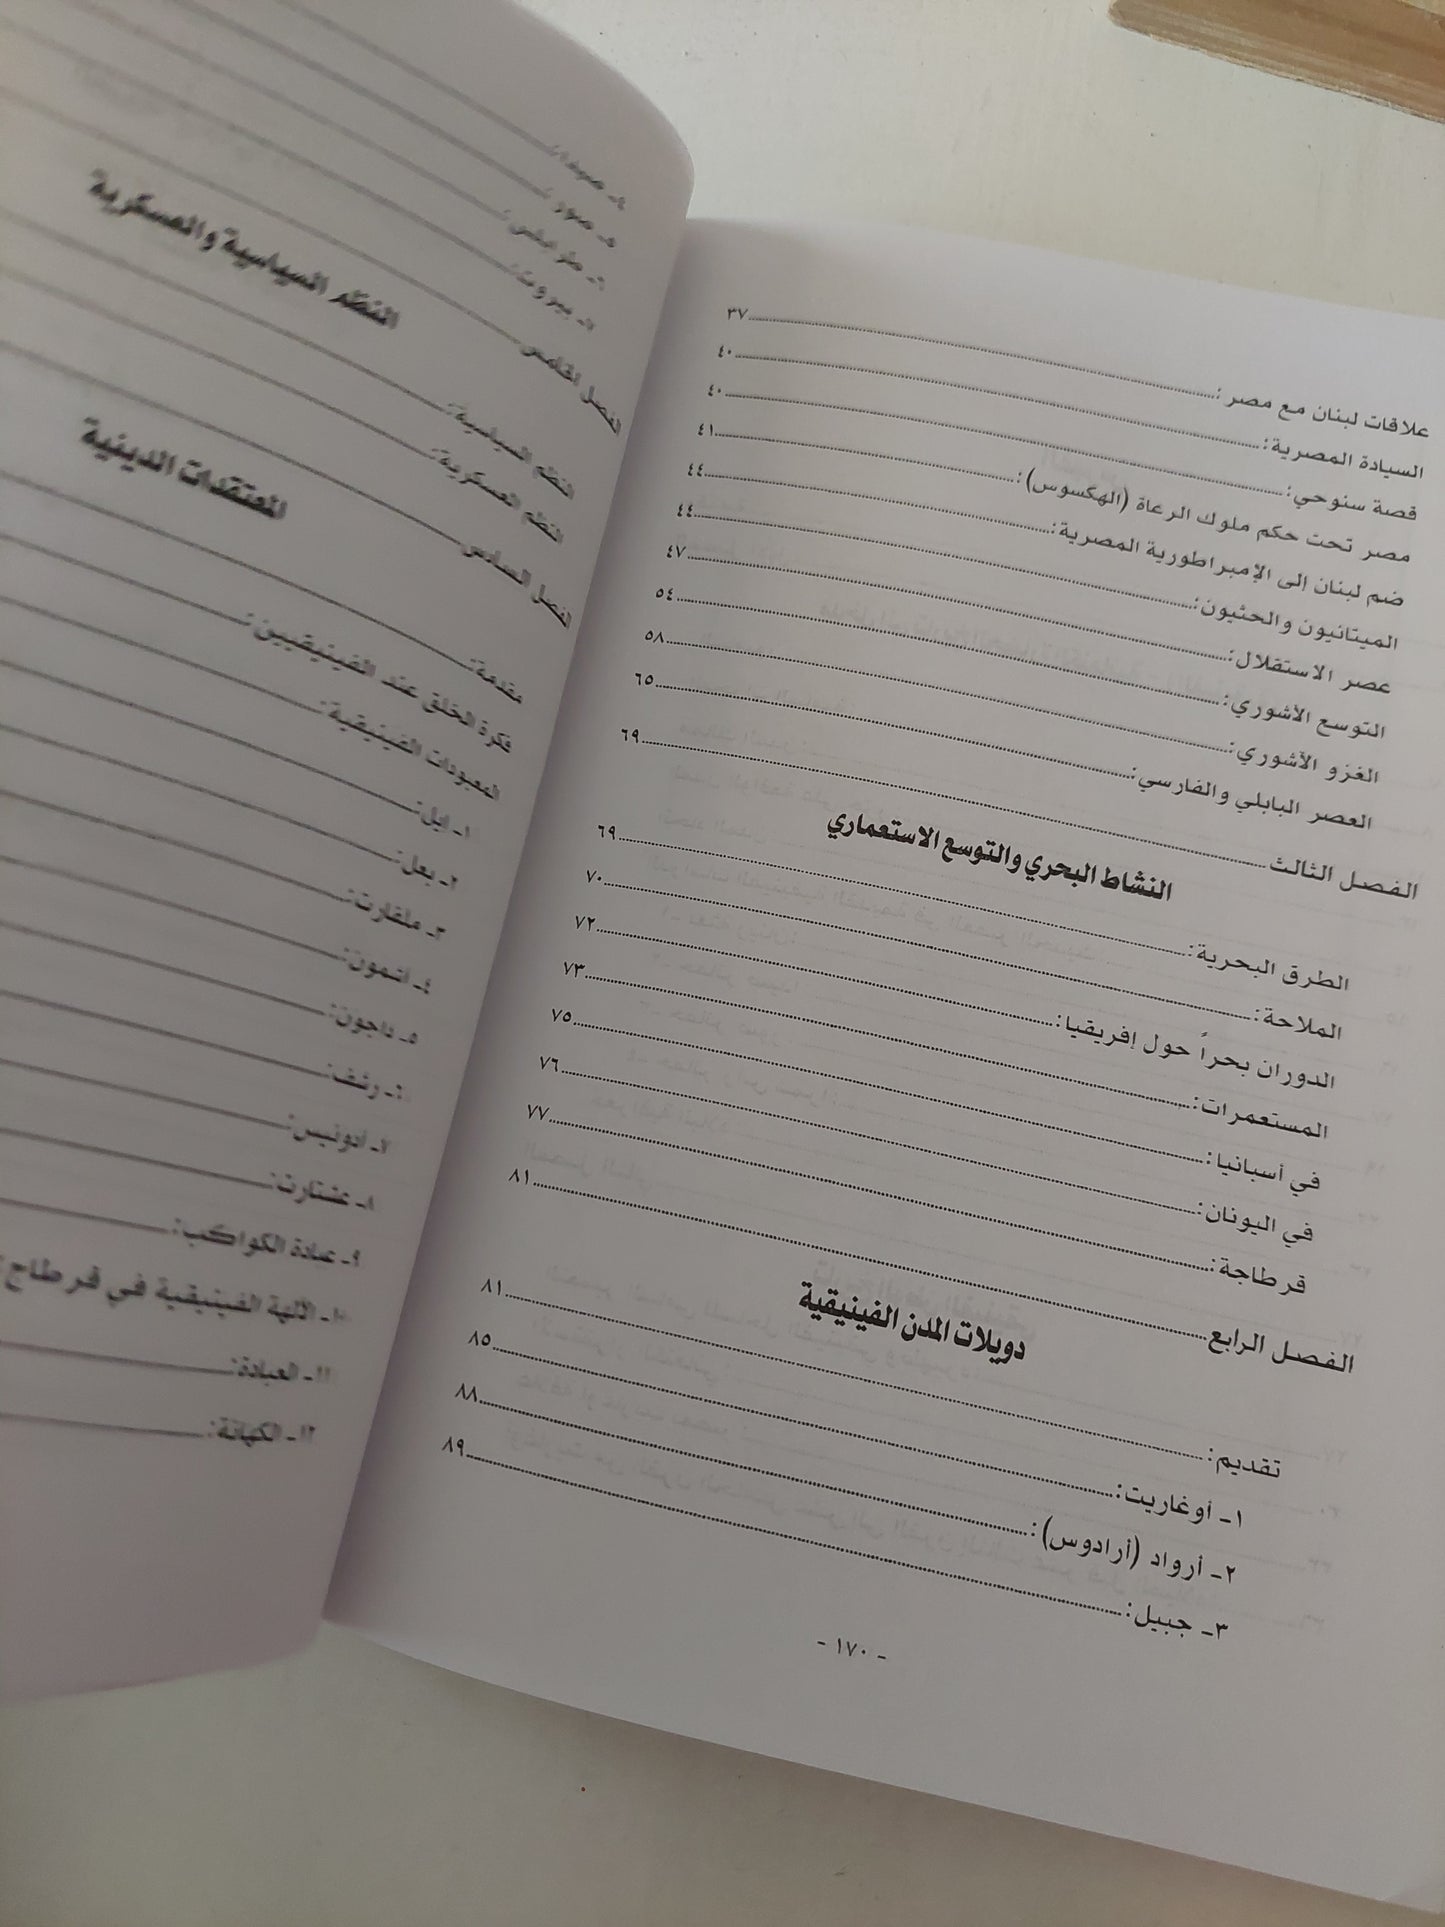 علاقات لبنان مع مصر: ٣٧
السيادة المصرية: ٤٠
قصة سنوحي: ٤٠
مصر تحت حكم ملوك الرعاة (الهكسوس): ٤١
ضم لبنان إلى الإمبراطورية المصرية: ٤٤
الميتانيون والحثيون: ٤٤
عصر الاستقلال: ٤٧
التوسع الأشوري: ٥٤
الغزو الأشوري: ٥٨
العصر البابلي والفارسي: ٦٥
الفصل الثالث ٦٩
النشاط البحري والتوسع الاستعماري
الطرق البحرية: ٦٩
الملاحة: ٧٠
الدوران بحراً حول إفريقيا: ٧٢
المستعمرات: ٧٣
في أسبانيا: ٧٥
في اليونان: ٧٦
قرطاجة: ٧٧
الفصل الرابع ٨١
دويلات المدن الفينيقية
تقديم: ٨١
١- أوغاريت: ٨٥
٢- أرواد (أرادوس): ٨٨
٣- جبيل: ٨٩
- ١٧٠ -
٤- صيدا:
٥- صور:
٦- طرابلس:
٧- بيروت:
الفصل الخامس
النظم السياسية والعسكرية
النظم السياسية:
النظم العسكرية:
الفصل السادس
المعتقدات الدينية
مقدمة:
فكرة الخلق عند الفينيقيين:
المعبودات الفينيقية:
١- ايل:
٢- بعل:
٣- ملقارت:
٤- اشمون:
٥- داجون:
٦- رشف:
٧- أدونيس:
٨- عشتارت:
٩- عبادة الكواكب:
١٠- الآلهة الفينيقية في قرطاج
١١- العبادة:
١٢- الكهانة: